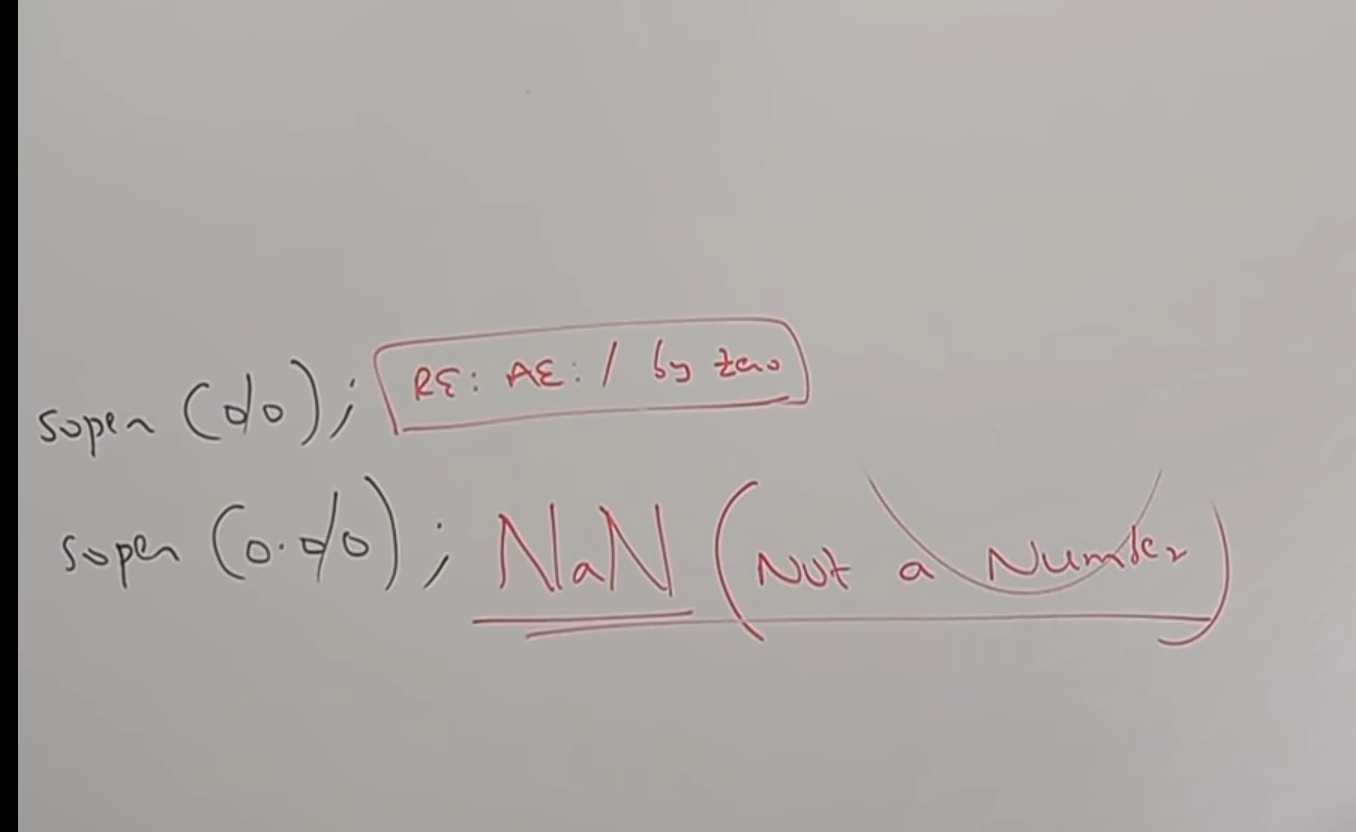 sopln (0/0); RE: AE: / by zero
sopln (0.0/0); NaN (Not a Number)